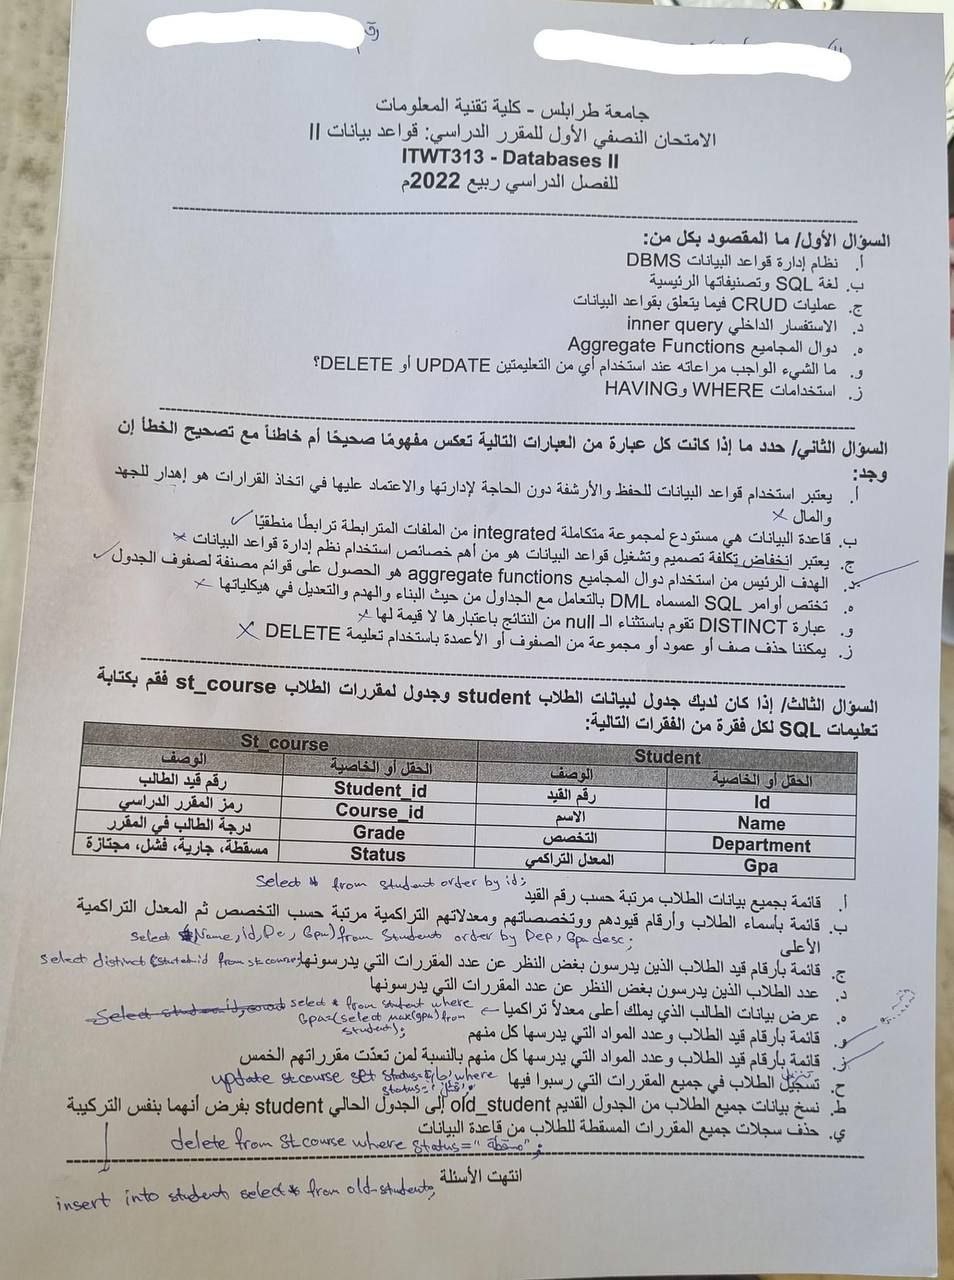 جامعة طرابلس - كلية تقنية المعلومات
الامتحان النصفي الأول للمقرر الدراسي: قواعد بيانات II
ITWT313 - Databases II
للفصل الدراسي ربيع 2022م
السؤال الأول/ ما المقصود بكل من:
أ. نظام إدارة قواعد البيانات DBMS
ب. لغة SQL وتصنيفاتها الرئيسية
ج. عمليات CRUD فيما يتعلق بقواعد البيانات
د. الاستفسار الداخلي inner query
ه. دوال المجاميع Aggregate Functions
و. ما الشيء الواجب مراعاته عند استخدام أي من التعليمتين UPDATE أو DELETE؟
ز. استخدامات WHERE وHAVING
السؤال الثاني/ حدد ما إذا كانت كل عبارة من العبارات التالية تعكس مفهومًا صحيحًا أم خاطئاً مع تصحيح الخطأ إن
وجد:
أ. يعتبر استخدام قواعد البيانات للحفظ والأرشفة دون الحاجة لإدارتها والاعتماد عليها في اتخاذ القرارات هو إهدار للجهد
والمال ✗
ب. قاعدة البيانات هي مستودع لمجموعة متكاملة integrated من الملفات المترابطة ترابطًا منطقيًا ✓
ج. يعتبر انخفاض تكلفة تصميم وتشغيل قواعد البيانات هو من أهم خصائص استخدام نظم إدارة قواعد البيانات ✗
د. الهدف الرئيس من استخدام دوال المجاميع aggregate functions هو الحصول على قوائم مصنفة لصفوف الجدول ✓
ه. تختص أوامر SQL المسماه DML بالتعامل مع الجداول من حيث البناء والهدم والتعديل في هيكلياتها ✗
و. عبارة DISTINCT تقوم باستثناء الـ null من النتائج باعتبارها لا قيمة لها ✗
ز. يمكننا حذف صف أو عمود أو مجموعة من الصفوف أو الأعمدة باستخدام تعليمة DELETE ✗
السؤال الثالث/ إذا كان لديك جدول لبيانات الطلاب student وجدول لمقررات الطلاب st_course فقم بكتابة
تعليمات SQL لكل فقرة من الفقرات التالية:
Student St_course
الحقل أو الخاصية الوصف الحقل أو الخاصية الوصف
Id رقم القيد Student_id رقم قيد الطالب
Name الاسم Course_id رمز المقرر الدراسي
Department التخصص Grade درجة الطالب في المقرر
Gpa المعدل التراكمي Status مسقطة، جارية، فشل، مجتازة
Select * from student order by id;
أ. قائمة بجميع بيانات الطلاب مرتبة حسب رقم القيد
ب. قائمة بأسماء الطلاب وأرقام قيودهم ووتخصصاتهم ومعدلاتهم التراكمية مرتبة حسب التخصص ثم المعدل التراكمية
الأعلى
select Name, id, De, Gpa from Student order by Dep, Gpa desc;
ج. قائمة بأرقام قيد الطلاب الذين يدرسون بغض النظر عن عدد المقررات التي يدرسونها
select distinct student id from st course;
د. عدد الطلاب الذين يدرسون بغض النظر عن عدد المقررات التي يدرسونها
ه. عرض بيانات الطالب الذي يملك أعلى معدلاً تراكميا
select * from student where
Gpa=(select max(gpa) from
student);
و. قائمة بأرقام قيد الطلاب وعدد المواد التي يدرسها كل منهم
ز. قائمة بأرقام قيد الطلاب وعدد المواد التي يدرسها كل منهم بالنسبة لمن تعدّت مقرراتهم الخمس
ح. تسجيل الطلاب في جميع المقررات التي رسبوا فيها
update st course set status= where
status='فشل';
ط. نسخ بيانات جميع الطلاب من الجدول القديم old_student إلى الجدول الحالي student بفرض أنهما بنفس التركيبة
ي. حذف سجلات جميع المقررات المسقطة للطلاب من قاعدة البيانات
delete from St course where status="مسقطة";
انتهت الأسئلة
insert into student select * from old-student;